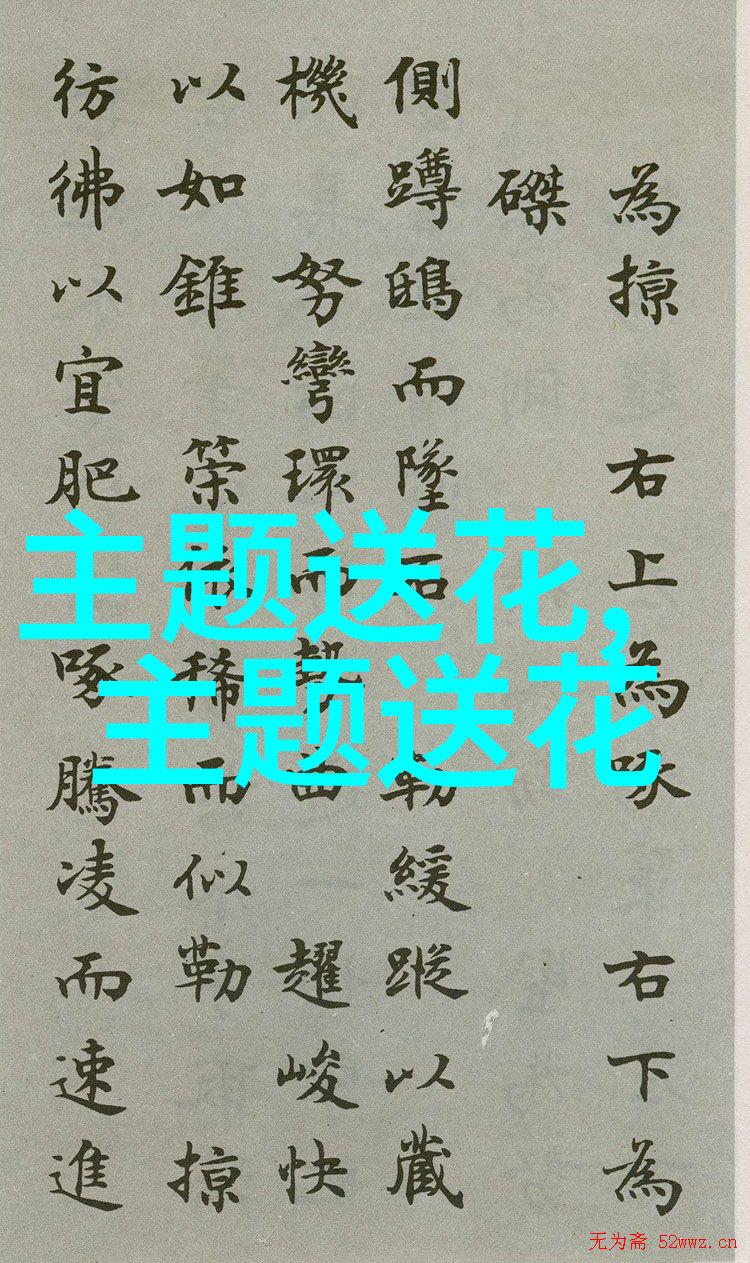 為掠 右上為啄 右下為
磔
側蹲鴟而墜石 勒緩蹤以藏
機 努彎環而勢曲 趯峻快
以如錐 策依稀而似勒 掠
彷彿以宜肥 啄騰凌而速進
主题送花,
主题送花
无为斋 52wwz.cn